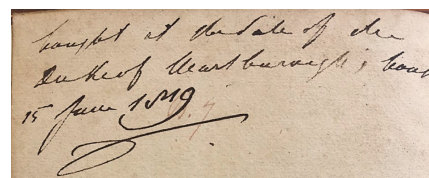 bought at the Sale of the
Duke of Marlborough's books
15 June 1819